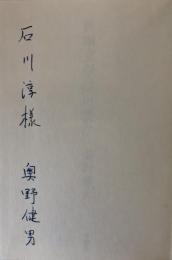 石川淳様
奥野健男